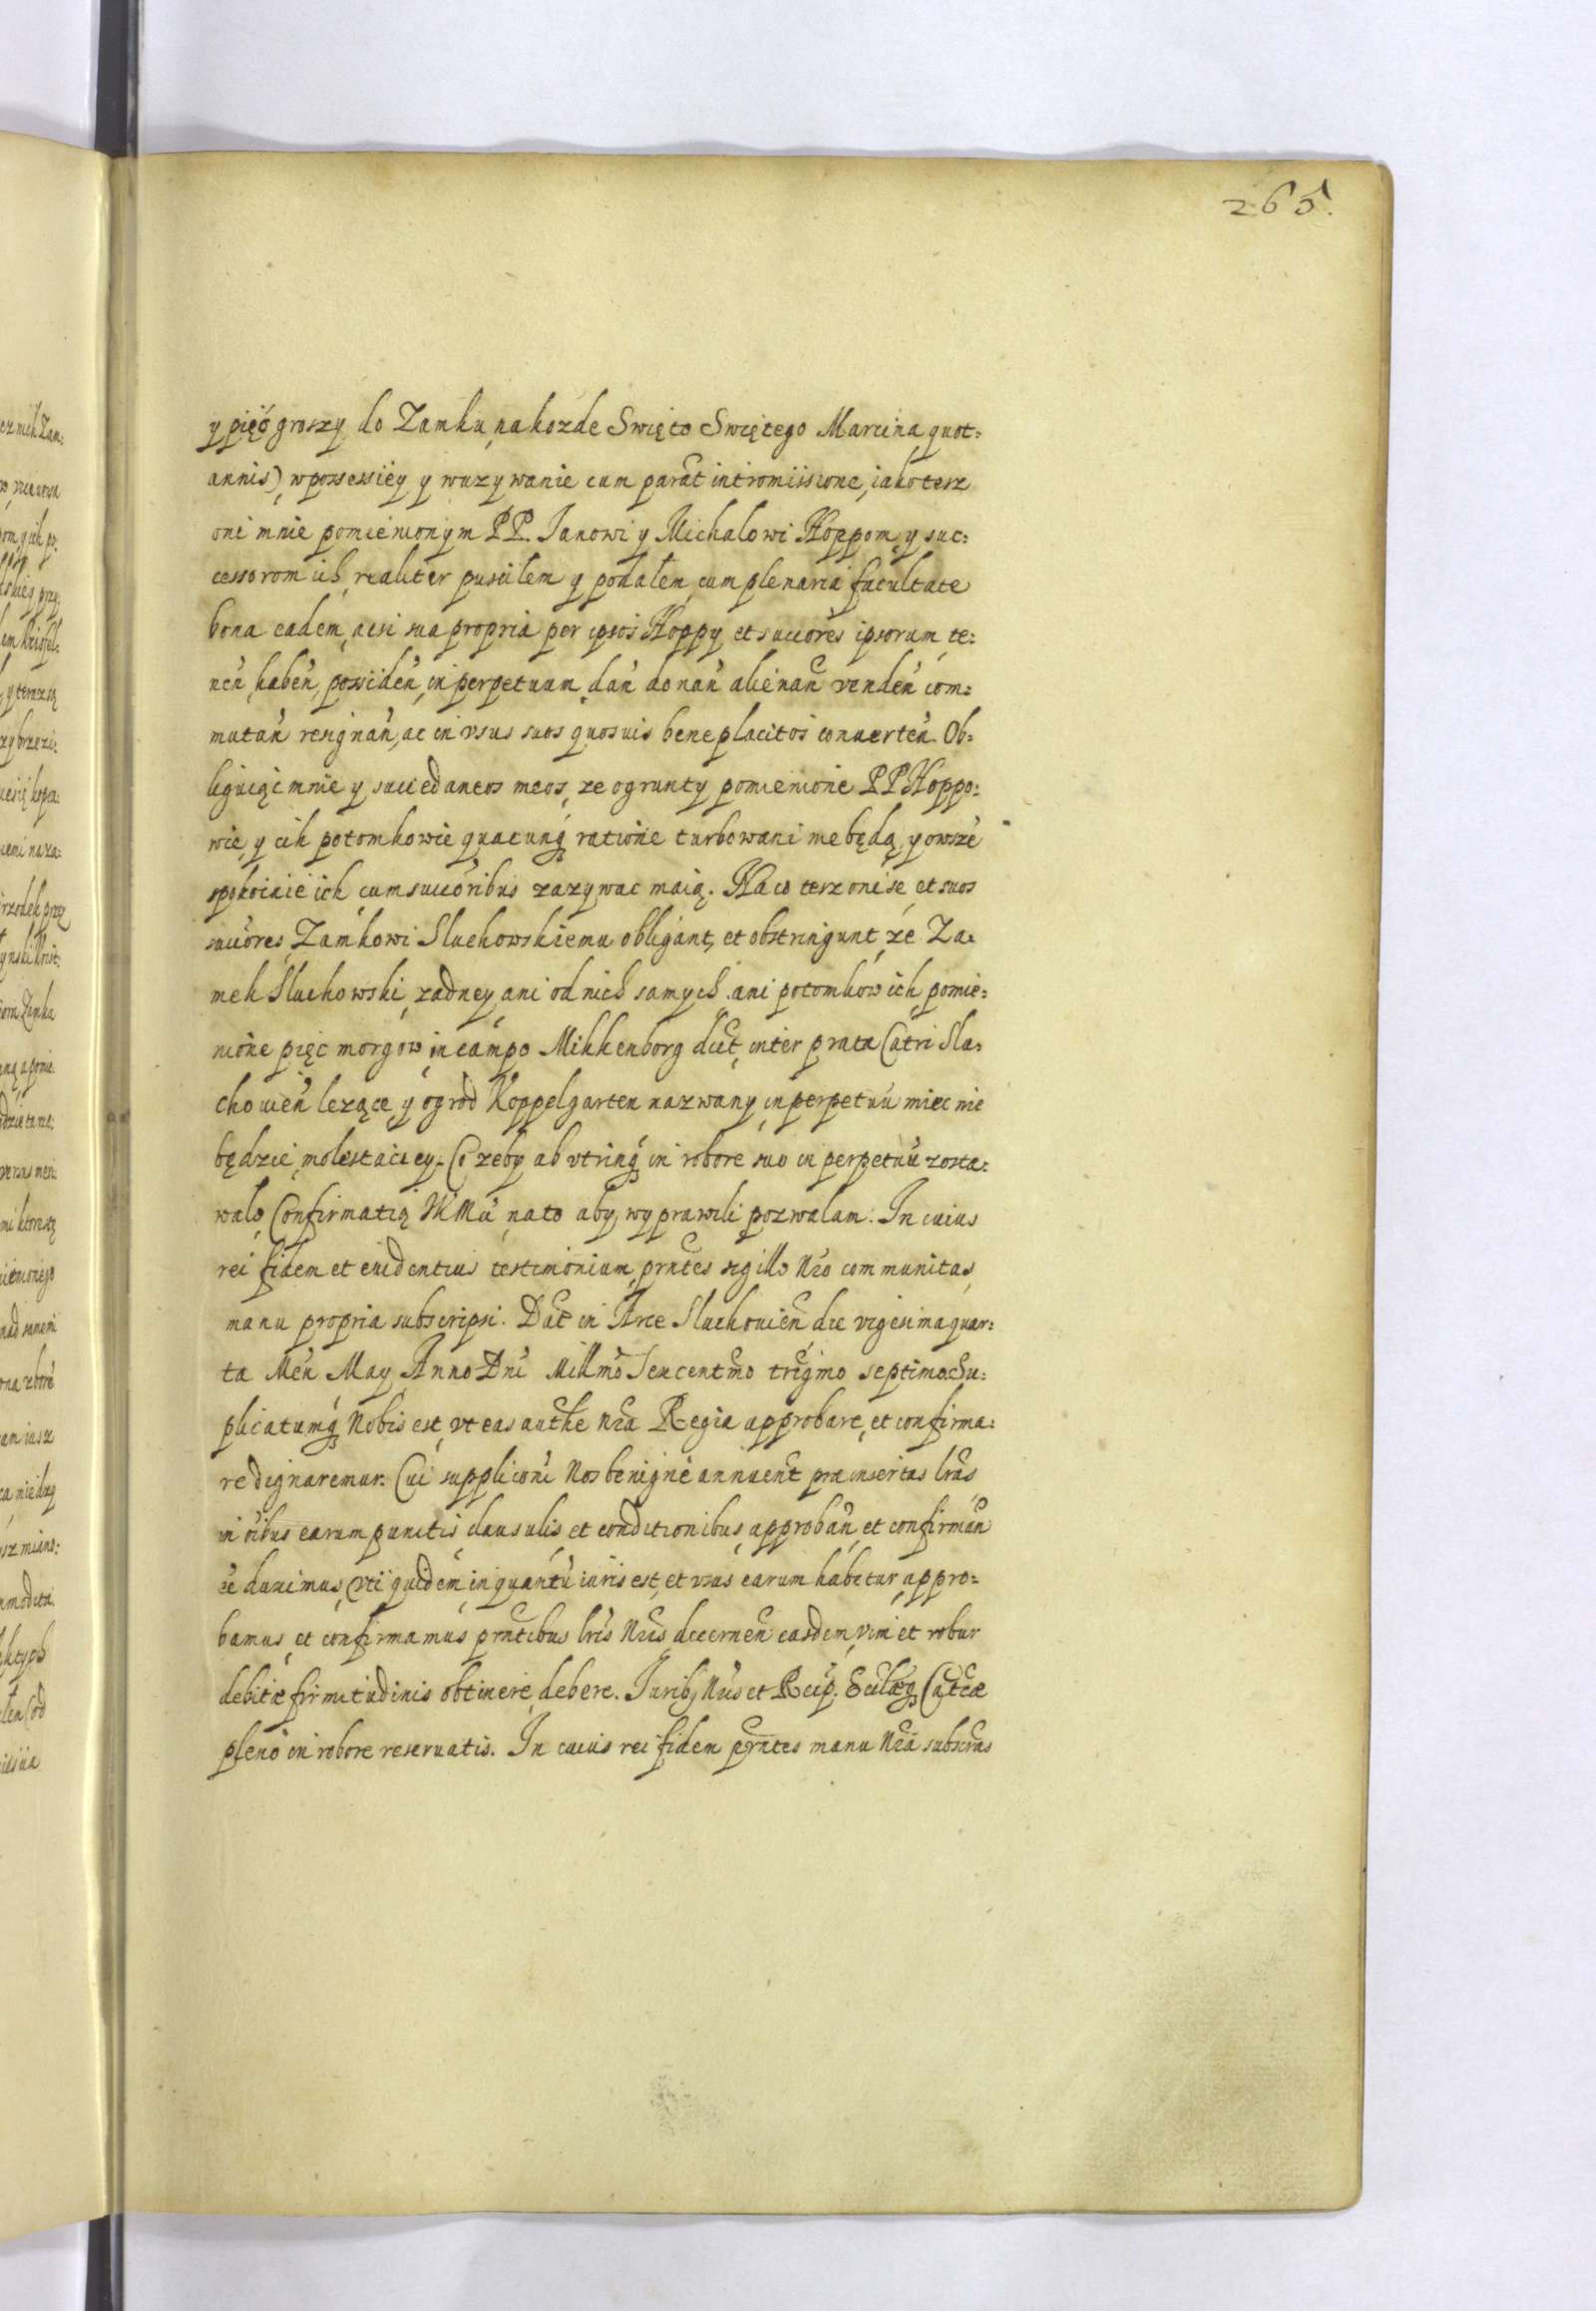 265.
y pięć groszy do Zamku, na kozde Swięto Swiętego Marcina quot=
annis) w possessiey y wuzywanie cum parāt intromissione, iako tesz
oni mnie pomienionym PP. Janowi y Michalowi Hoppom, y suc=
cessorom ich, realiter puscilem y podałem, cum plenaria facultate
bona eadem, acsi sua propria per ipsos Hoppy et succōres ipsorum, te=
neñ, habeñ, possideñ, in perpetuum, dañ donañ alienañ vendeñ com=
mutañ resignañ, ac in vsus suos quosuis beneplacitos conuerteñ. Ob=
liguiąc mnie y succedaneos meos, ze o grunty pomienione PP Hoppo=
wie, y ich potomkowie quacunq ratione turbowani nie będą, y owsze
spokoinie ich cum succōribus zazywac maią. Na co tesz oni se, et suos
succōres Zamkowi Sluchowskiemu obligant, et obstringunt, ze Za=
mek Sluchowski, zadney ani od nich samych, ani potomkow ich pomie=
nione pięc morgow in campo Mikkenborg dict, inter prata Castri Slu=
chouieñ lezące, y ogrod Koppelgarten nazwany in perpetuū miec nie
będzie molestaciey. Co zeby ab vtrinq in robore suo in perpetuū zosta=
walo, Confirmatią JKMci na to aby wyprawili pozwalam. In cuius
rei fidem et euidentius testimonium, prntes sigillo Nro communitas,
manu propria subscripsi. Dat in Arce Sluchouieñ die vigesima quar=
ta Meñ May Anno Dni Millmo Sexcentmo trigmo septimo. Su=
plicatumq Nobis est, vt eas authe Nra Regia approbare, et confirma=
re dignaremur. Cui supplicōni Nos benigne annuent præinsertas lras,
in oibus earum punctis, clausulis, et conditionibus, approbañ, et confirmañ
ee duximus, vti quidem, in quantū iuris est, et vsus earum habetur, appro=
bamus, et confirmamus prntibus lris Nris decerneñ easdem, vim et robur
debitæ firmitudinis obtinere, debere. Iurib, Nris et Reip. Ecclæq Catcæ
pleno in robore reseruatis. In cuius rei fidem prntes manu Nra subscras